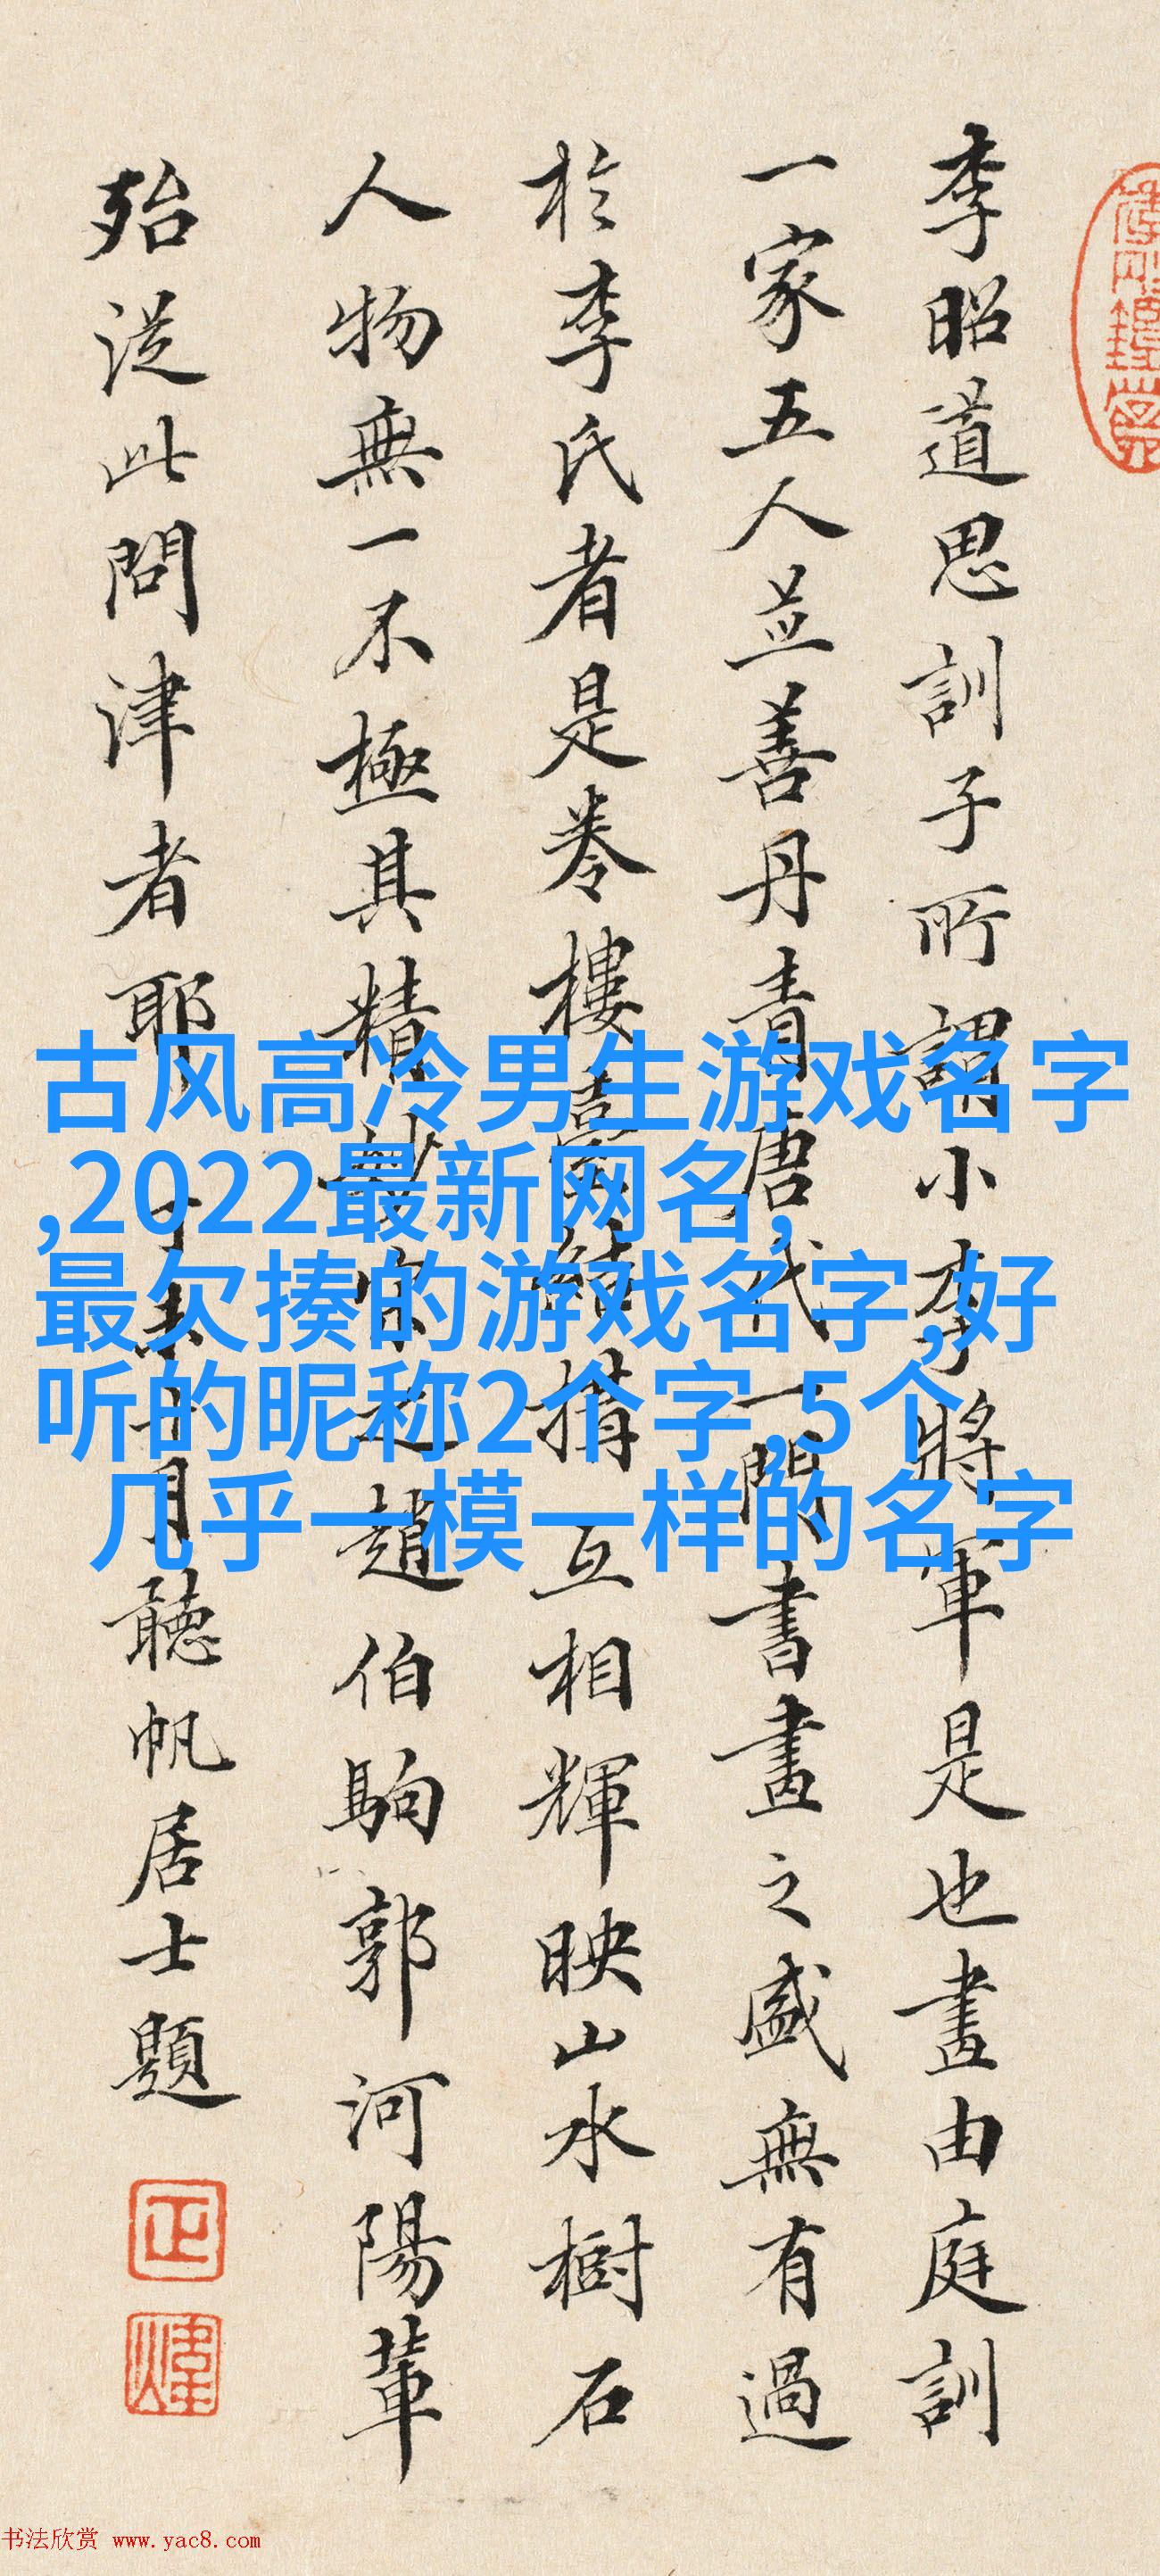 李昭道思訓子所謂小李將軍是也畫由庭訓
一家五人並善丹青唐代一門書畫之盛無有過
於李氏者是卷樓臺結構互相輝映山水樹石
人物無一不極其精妙宋之趙伯駒郭河陽輩
殆從此問津者耶
十月聽帆居士題
正
煒
古风高冷男生游戏名字
,2022最新网名,
最欠揍的游戏名字,好
听的昵称2个字,5个
几乎一模一样的名字
书法欣赏 www.yac8.com